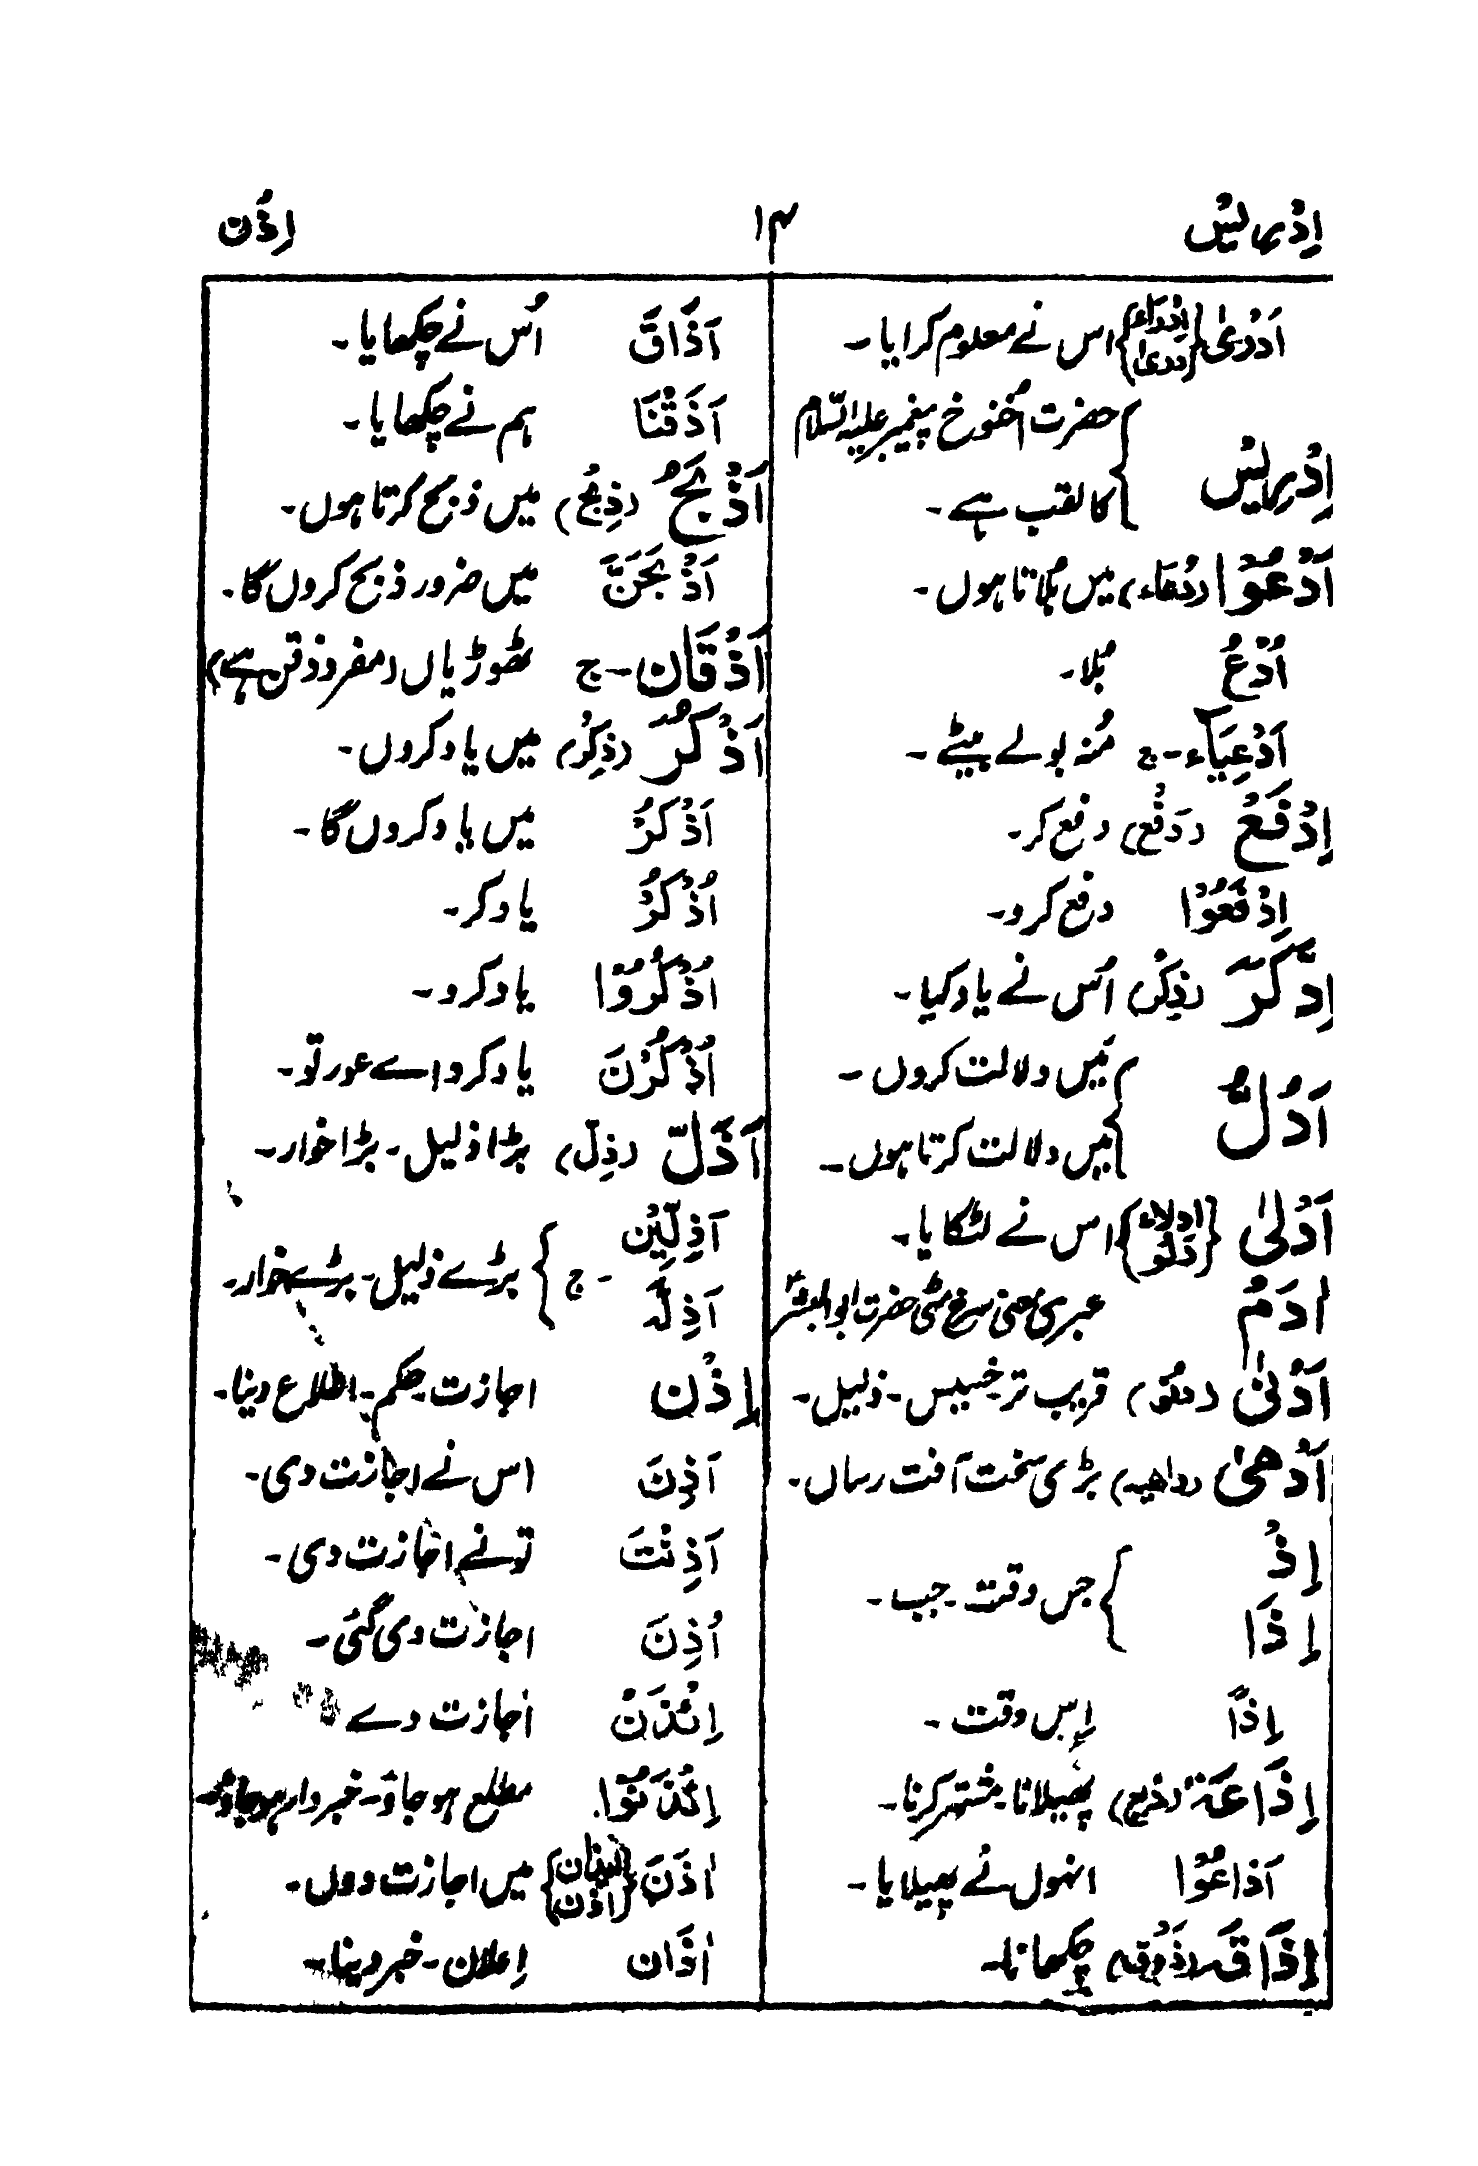 اِدْرِیْس ۱۴ اِذْن
اَدْرٰی {اِدْرَاء دری} اس نے معلوم کرایا۔
اِدْرِیْس { حضرت اُخنوخ پیغمبر علیہ السّلام
کا لقب ہے۔
اَدْعُوْا (دُعَاء) میں بُلاتا ہوں۔
اُدْعُ بُلا۔
اَدْعِیَاء۔ج مُنہ بولے بیٹے۔
اِدْفَعْ (دَفْع) دفع کر۔
اِدْفَعُوْا دفع کرو۔
اِدَّكَرَ (ذِكْر) اُس نے یاد کیا۔
اَدُلُّ { مَیں دلالت کروں۔
میں دلالت کرتا ہوں۔
اَدْلٰی {ادلاء دَلْو} اس نے لٹکایا۔
اٰدَمُ عبری معنی سرخ مٹی حضرت ابوالبشرؑ
اَدْنٰی (دنو) قریب تر۔خسیس۔ذلیل۔
اَدْهٰی (داهیه) بڑی سخت آفت رساں۔
اِذْ
اِذَا } جس وقت۔جب۔
اِذًا اِس وقت۔
اِذَاعَة (ذیع) پھیلانا۔مشتہر کرنا۔
اَذَاعُوْا انہوں نے پھیلایا۔
اِذَاقَہ (ذوق) چکھانا۔
اَذَاقَ اُس نے چکھایا۔
اَذَقْنَا ہم نے چکھایا۔
اَذْبَحُ (ذِبْح) میں ذبح کرتا ہوں۔
اَذْبَحَنَّ میں ضرور ذبح کروں گا۔
اَذْقَان۔ج ٹھوڑیاں (مفرد ذقن ہے)
اَذْكُرُ (ذِكْر) میں یاد کروں۔
اَذْكُرُ میں یاد کروں گا۔
اُذْكُرْ یاد کر۔
اُذْكُرُوْا یاد کرو۔
اُذْكُرْنَ یاد کرو اے عورتو۔
اَذَلّ (ذِلّ) بڑا ذلیل۔بڑا خوار۔
اَذِلِّیْن
اَذِلَّہ ۔ج } بڑے ذلیل۔بڑے خوار۔
اِذْن اجازت۔حکم۔اطلاع دینا۔
اَذِنَ اس نے اجازت دی۔
اَذِنْتَ تو نے اجازت دی۔
اُذِنَ اجازت دی گئی۔
اِئْذَنْ اجازت دے
اِئْذَنُوْا مطلع ہو جاؤ۔خبردار ہو جاؤ۔
اٰذَنَ { اذن} میں اجازت دوں۔
اٰذَان اِعلان۔خبر دینا۔